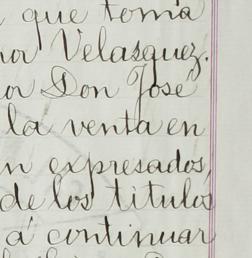 que toma
or Velasquez.
or Don José
la venta en
n expresados,
de los titulos
á continuar